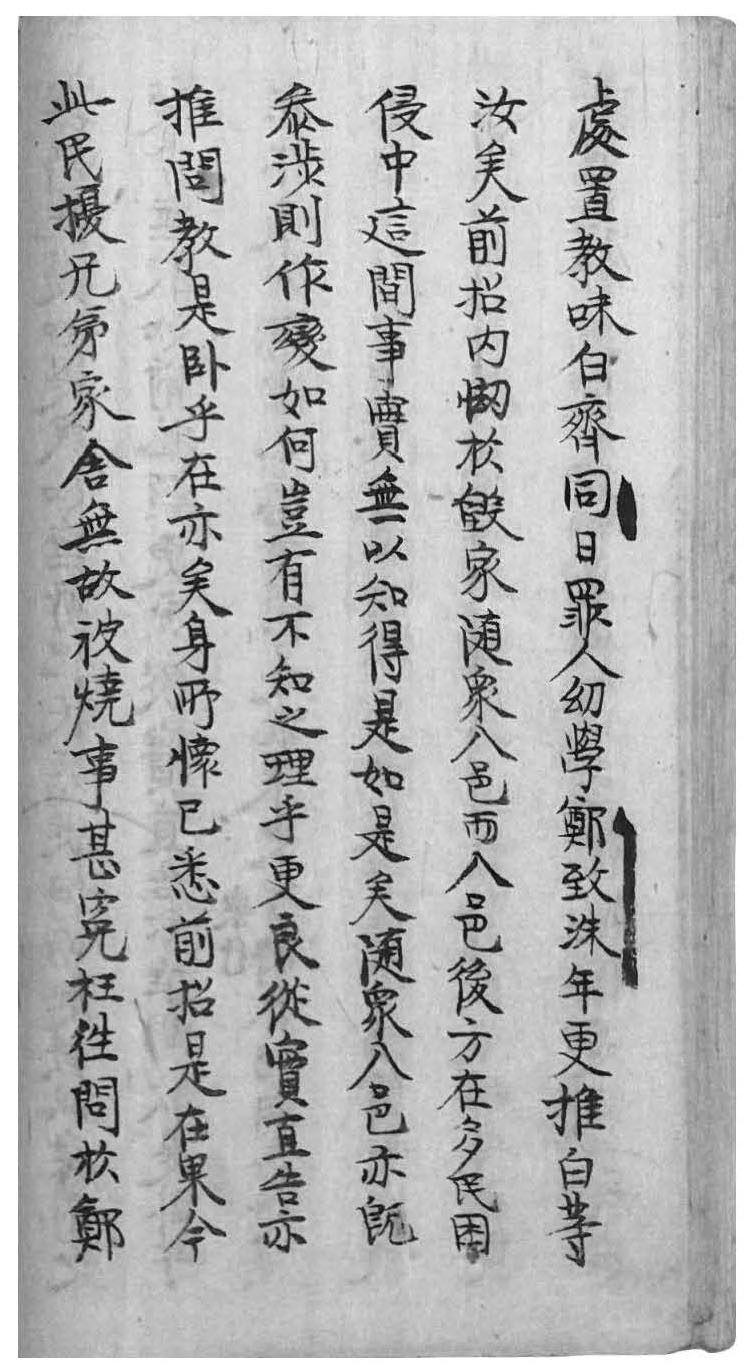 處置教味白齊同日罪人幼學鄭致洙年更推白等
汝矣前招內㤼於毁家隨衆入邑而入邑後方在多民困
侵中這間事實無以知得是如是矣隨衆入邑亦旣
叅涉則作變如何豈有不知之理乎更良從實直告亦
推問教是臥乎在亦矣身所懷已悉前招是在果今
此民擾兄弟家舍無故被燒事甚寃枉徃問於鄭